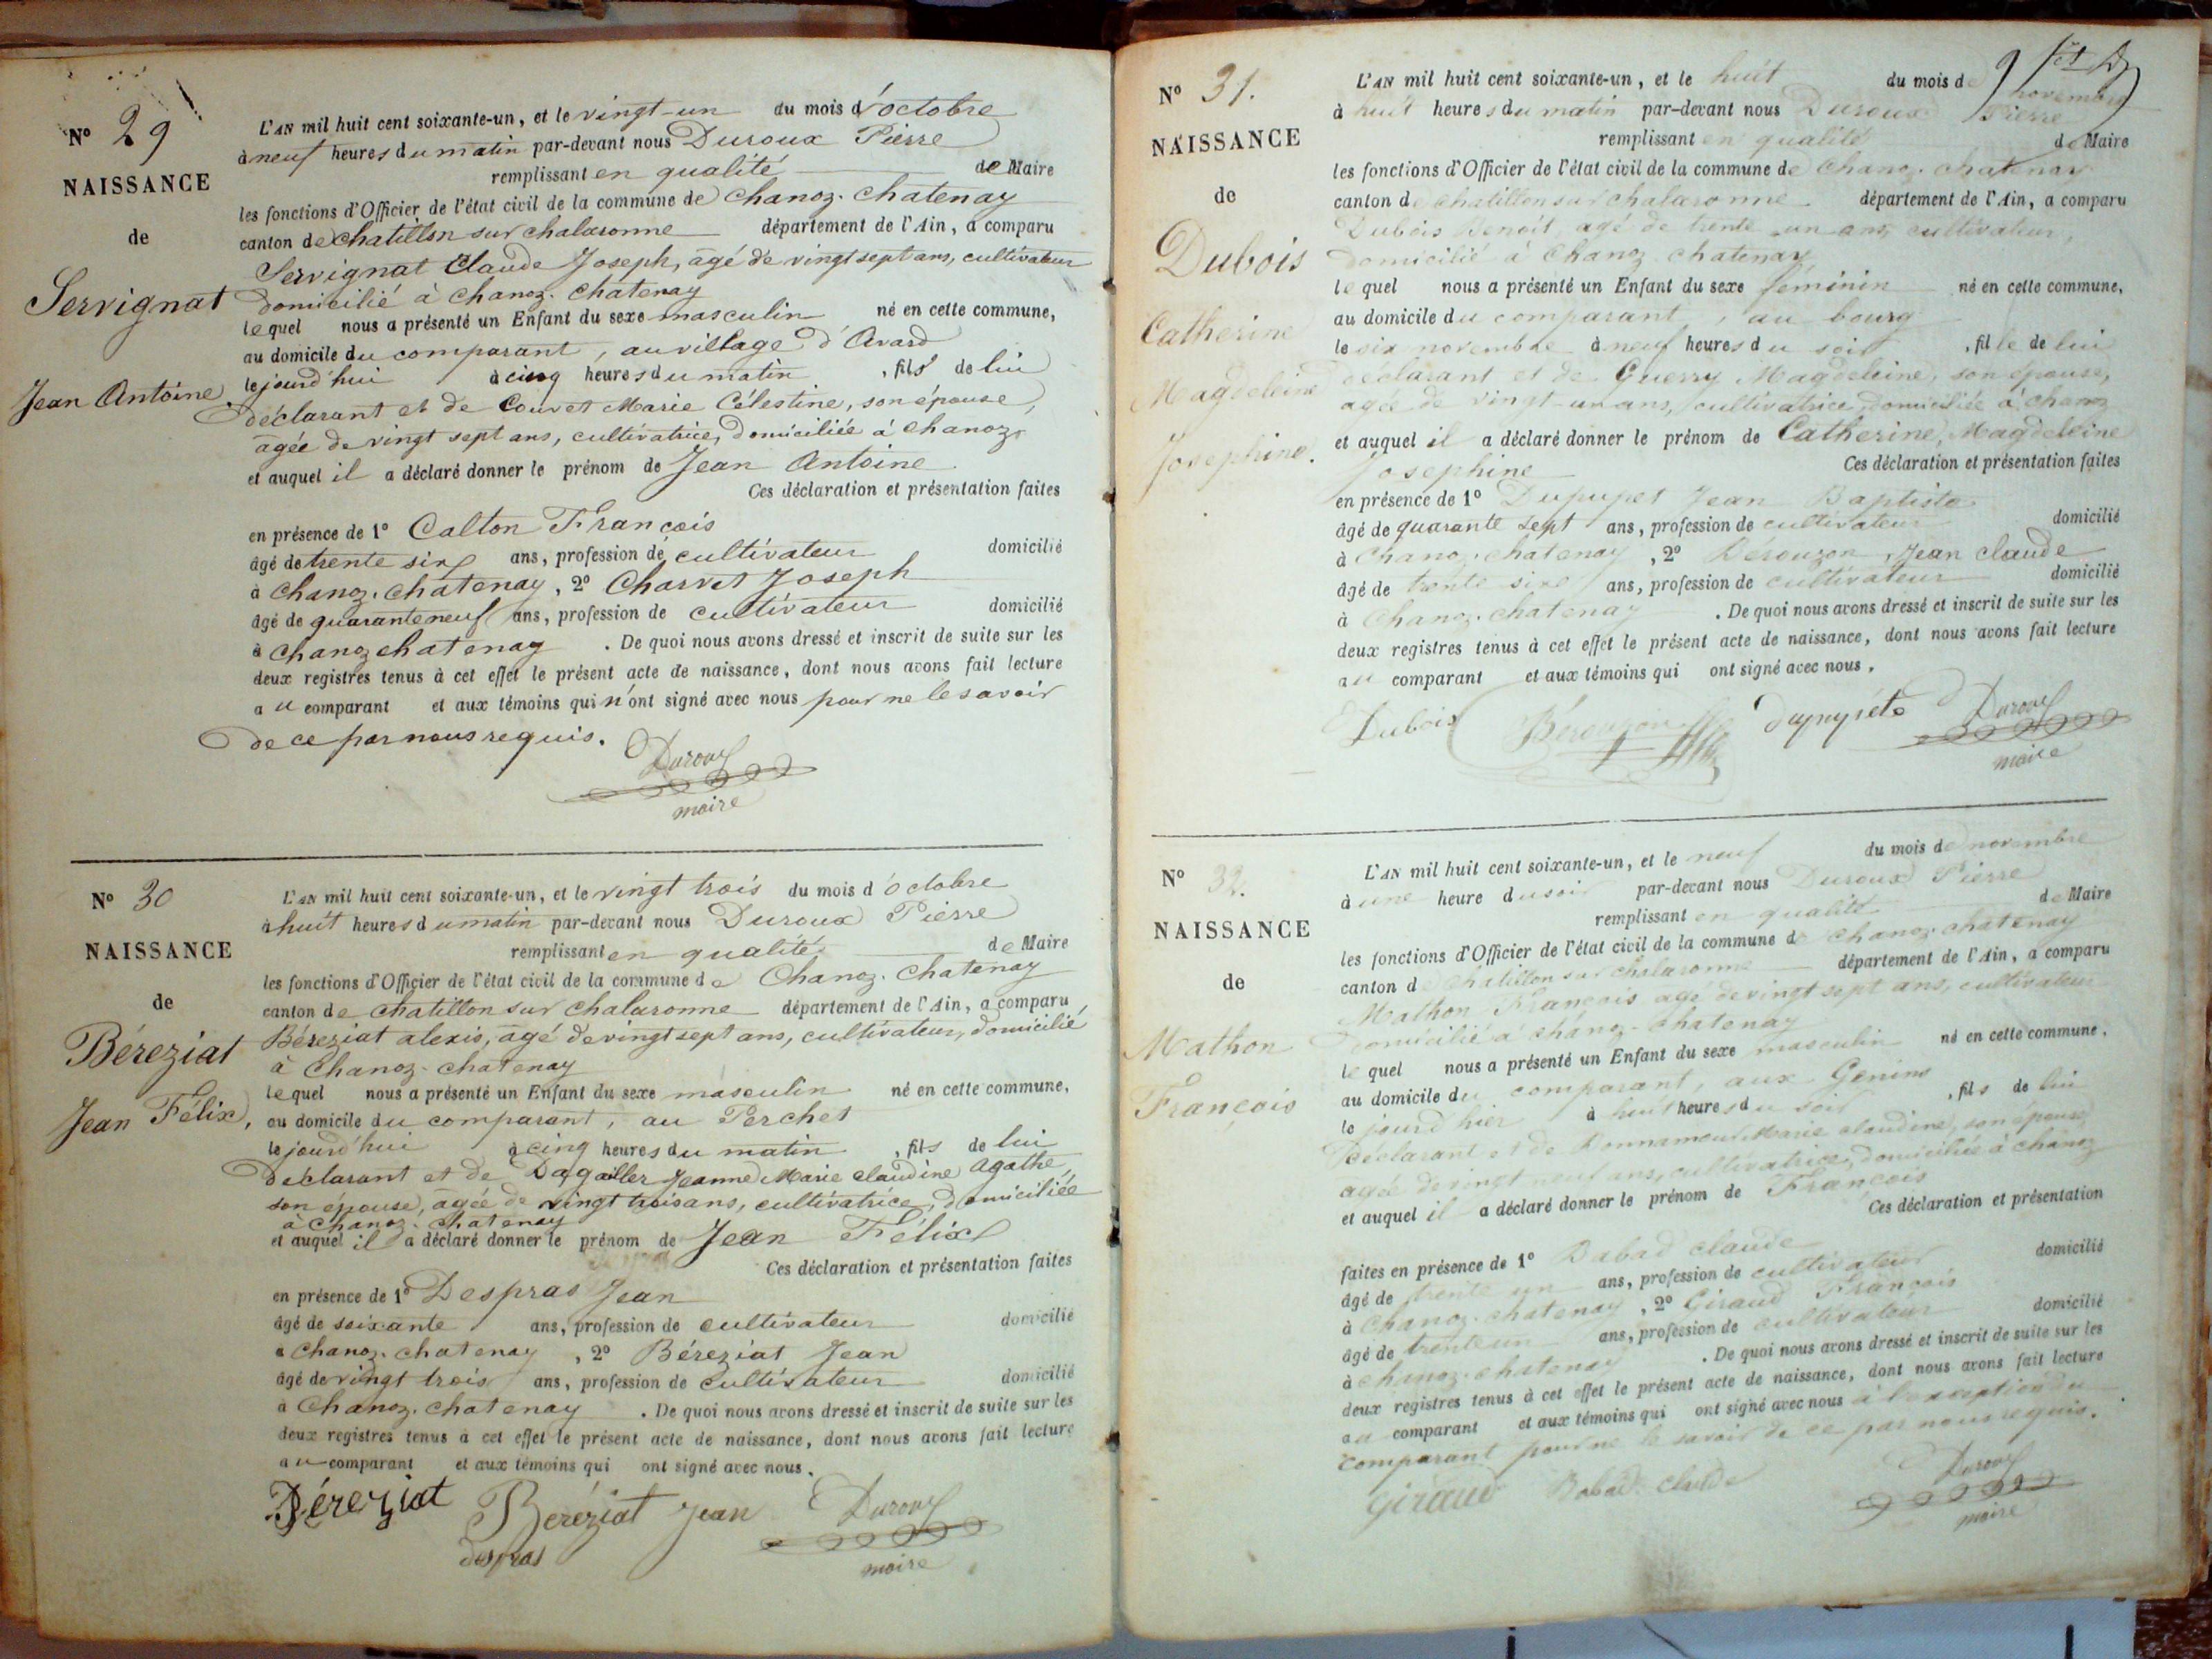 Nº 29
NAISSANCE
de
Servignat
Jean Antoine.
L'AN mil huit cent soixante-un, et le vingt-un du mois d'octobre
à neuf heures du matin par-devant nous Duroux Pierre
remplissant en qualité de Maire
les fonctions d'Officier de l'état civil de la commune de Chanoz-Chatenay
canton de Chatillon sur chalaronne département de l'Ain, a comparu
Servignat Claude Joseph, âgé de vingt sept ans, cultivateur
domicilié à Chanoz-Chatenay
lequel nous a présenté un Enfant du sexe masculin né en cette commune,
au domicile du comparant, au village d'Avard
le jourd'hui à cinq heures du matin, fils de lui
déclarant et de Couvet Marie Célestine, son épouse,
âgée de vingt sept ans, cultivatrice, domiciliée à Chanoz
et auquel il a déclaré donner le prénom de Jean Antoine
Ces déclaration et présentation faites
en présence de 1º Calton François
âgé de trente six ans, profession de cultivateur domicilié
à Chanoz-Chatenay, 2º Charvet Joseph
âgé de quarante neuf ans, profession de cultivateur domicilié
à Chanoz chatenay. De quoi nous avons dressé et inscrit de suite sur les
deux registres tenus à cet effet le présent acte de naissance, dont nous avons fait lecture
au comparant et aux témoins qui n'ont signé avec nous pour ne le savoir
de ce par nous requis.
Duroux
maire
Nº 30
NAISSANCE
de
Béreziat
Jean Félix,
L'AN mil huit cent soixante-un, et le vingt trois du mois d'octobre
à huit heures du matin par-devant nous Duroux Pierre
remplissant en qualité de Maire
les fonctions d'Officier de l'état civil de la commune de Chanoz-Chatenay
canton de Chatillon sur chalaronne département de l'Ain, a comparu
Béreziat alexis, âgé de vingt sept ans, cultivateur, domicilié
à Chanoz-chatenay
lequel nous a présenté un Enfant du sexe masculin né en cette commune,
au domicile du comparant, au Perchet
le jourd'hui à cinq heures du matin, fils de lui
déclarant et de Dagaller Jeanne Marie claudine Agathe,
son épouse, âgée de vingt trois ans, cultivatrice, domiciliée
à Chanoz-Chatenay
et auquel il a déclaré donner le prénom de Jean Félix
Ces déclaration et présentation faites
en présence de 1º Despras Jean
âgé de soixante ans, profession de cultivateur domicilié
à Chanoz-chatenay, 2º Béreziat Jean
âgé de vingt trois ans, profession de cultivateur domicilié
à Chanoz-chatenay. De quoi nous avons dressé et inscrit de suite sur les
deux registres tenus à cet effet le présent acte de naissance, dont nous avons fait lecture
au comparant et aux témoins qui ont signé avec nous.
Béreziat Beréziat Jean Duroux
despras maire
Nº 31.
NAISSANCE
de
Dubois
Catherine
Magdeleine
Josephine.
L'AN mil huit cent soixante-un, et le huit du mois de novembre
à huit heures du matin par-devant nous Duroux Pierre
remplissant en qualité de Maire
les fonctions d'Officier de l'état civil de la commune de Chanoz-chatenay
canton de chatillon sur chalaronne département de l'Ain, a comparu
Dubois Benoit, agé de trente un ans, cultivateur,
domicilié à Chanoz-chatenay
lequel nous a présenté un Enfant du sexe féminin né en cette commune,
au domicile du comparant, au bourg
le six novembre à neuf heures du soir, fille de lui
déclarant et de Guerry Magdeleine, son épouse,
agée de vingt-un ans, cultivatrice, domiciliée à chanoz
et auquel il a déclaré donner le prénom de Catherine, Magdeleine
Josephine
Ces déclaration et présentation faites
en présence de 1º Dupupet Jean Baptiste
âgé de quarante sept ans, profession de cultivateur domicilié
à Chanoz-chatenay, 2º Bérouzon, Jean claude
âgé de trente six ans, profession de cultivateur domicilié
à Chanoz-chatenay. De quoi nous avons dressé et inscrit de suite sur les
deux registres tenus à cet effet le présent acte de naissance, dont nous avons fait lecture
au comparant et aux témoins qui ont signé avec nous.
Dubois Bérouzon Duroux
maire
Nº 32.
NAISSANCE
de
Mathon
François
L'AN mil huit cent soixante-un, et le neuf du mois de novembre
à une heure du soir par-devant nous Duroux Pierre
remplissant en qualité de Maire
les fonctions d'Officier de l'état civil de la commune de Chanoz-chatenay
canton de Chatillon sur chalaronne département de l'Ain, a comparu
Mathon François agé de vingt sept ans, cultivateur
domicilié à chanoz-chatenay
lequel nous a présenté un Enfant du sexe masculin né en cette commune,
au domicile du comparant, aux Genins
le jourd'hier à huit heures du soir, fils de lui
déclarant et de Marie claudine, son épouse,
agée de vingt neuf ans, cultivatrice, domiciliée à chanoz
et auquel il a déclaré donner le prénom de François
Ces déclaration et présentation
faites en présence de 1º Babad claude
âgé de trente un ans, profession de cultivateur domicilié
à Chanoz-chatenay, 2º Giraud François
âgé de trente un ans, profession de cultivateur domicilié
à chanoz-chatenay. De quoi nous avons dressé et inscrit de suite sur les
deux registres tenus à cet effet le présent acte de naissance, dont nous avons fait lecture
au comparant et aux témoins qui ont signé avec nous à l'exception du
comparant pour ne le savoir de ce par nous requis.
Giraud Babad claude Duroux
maire